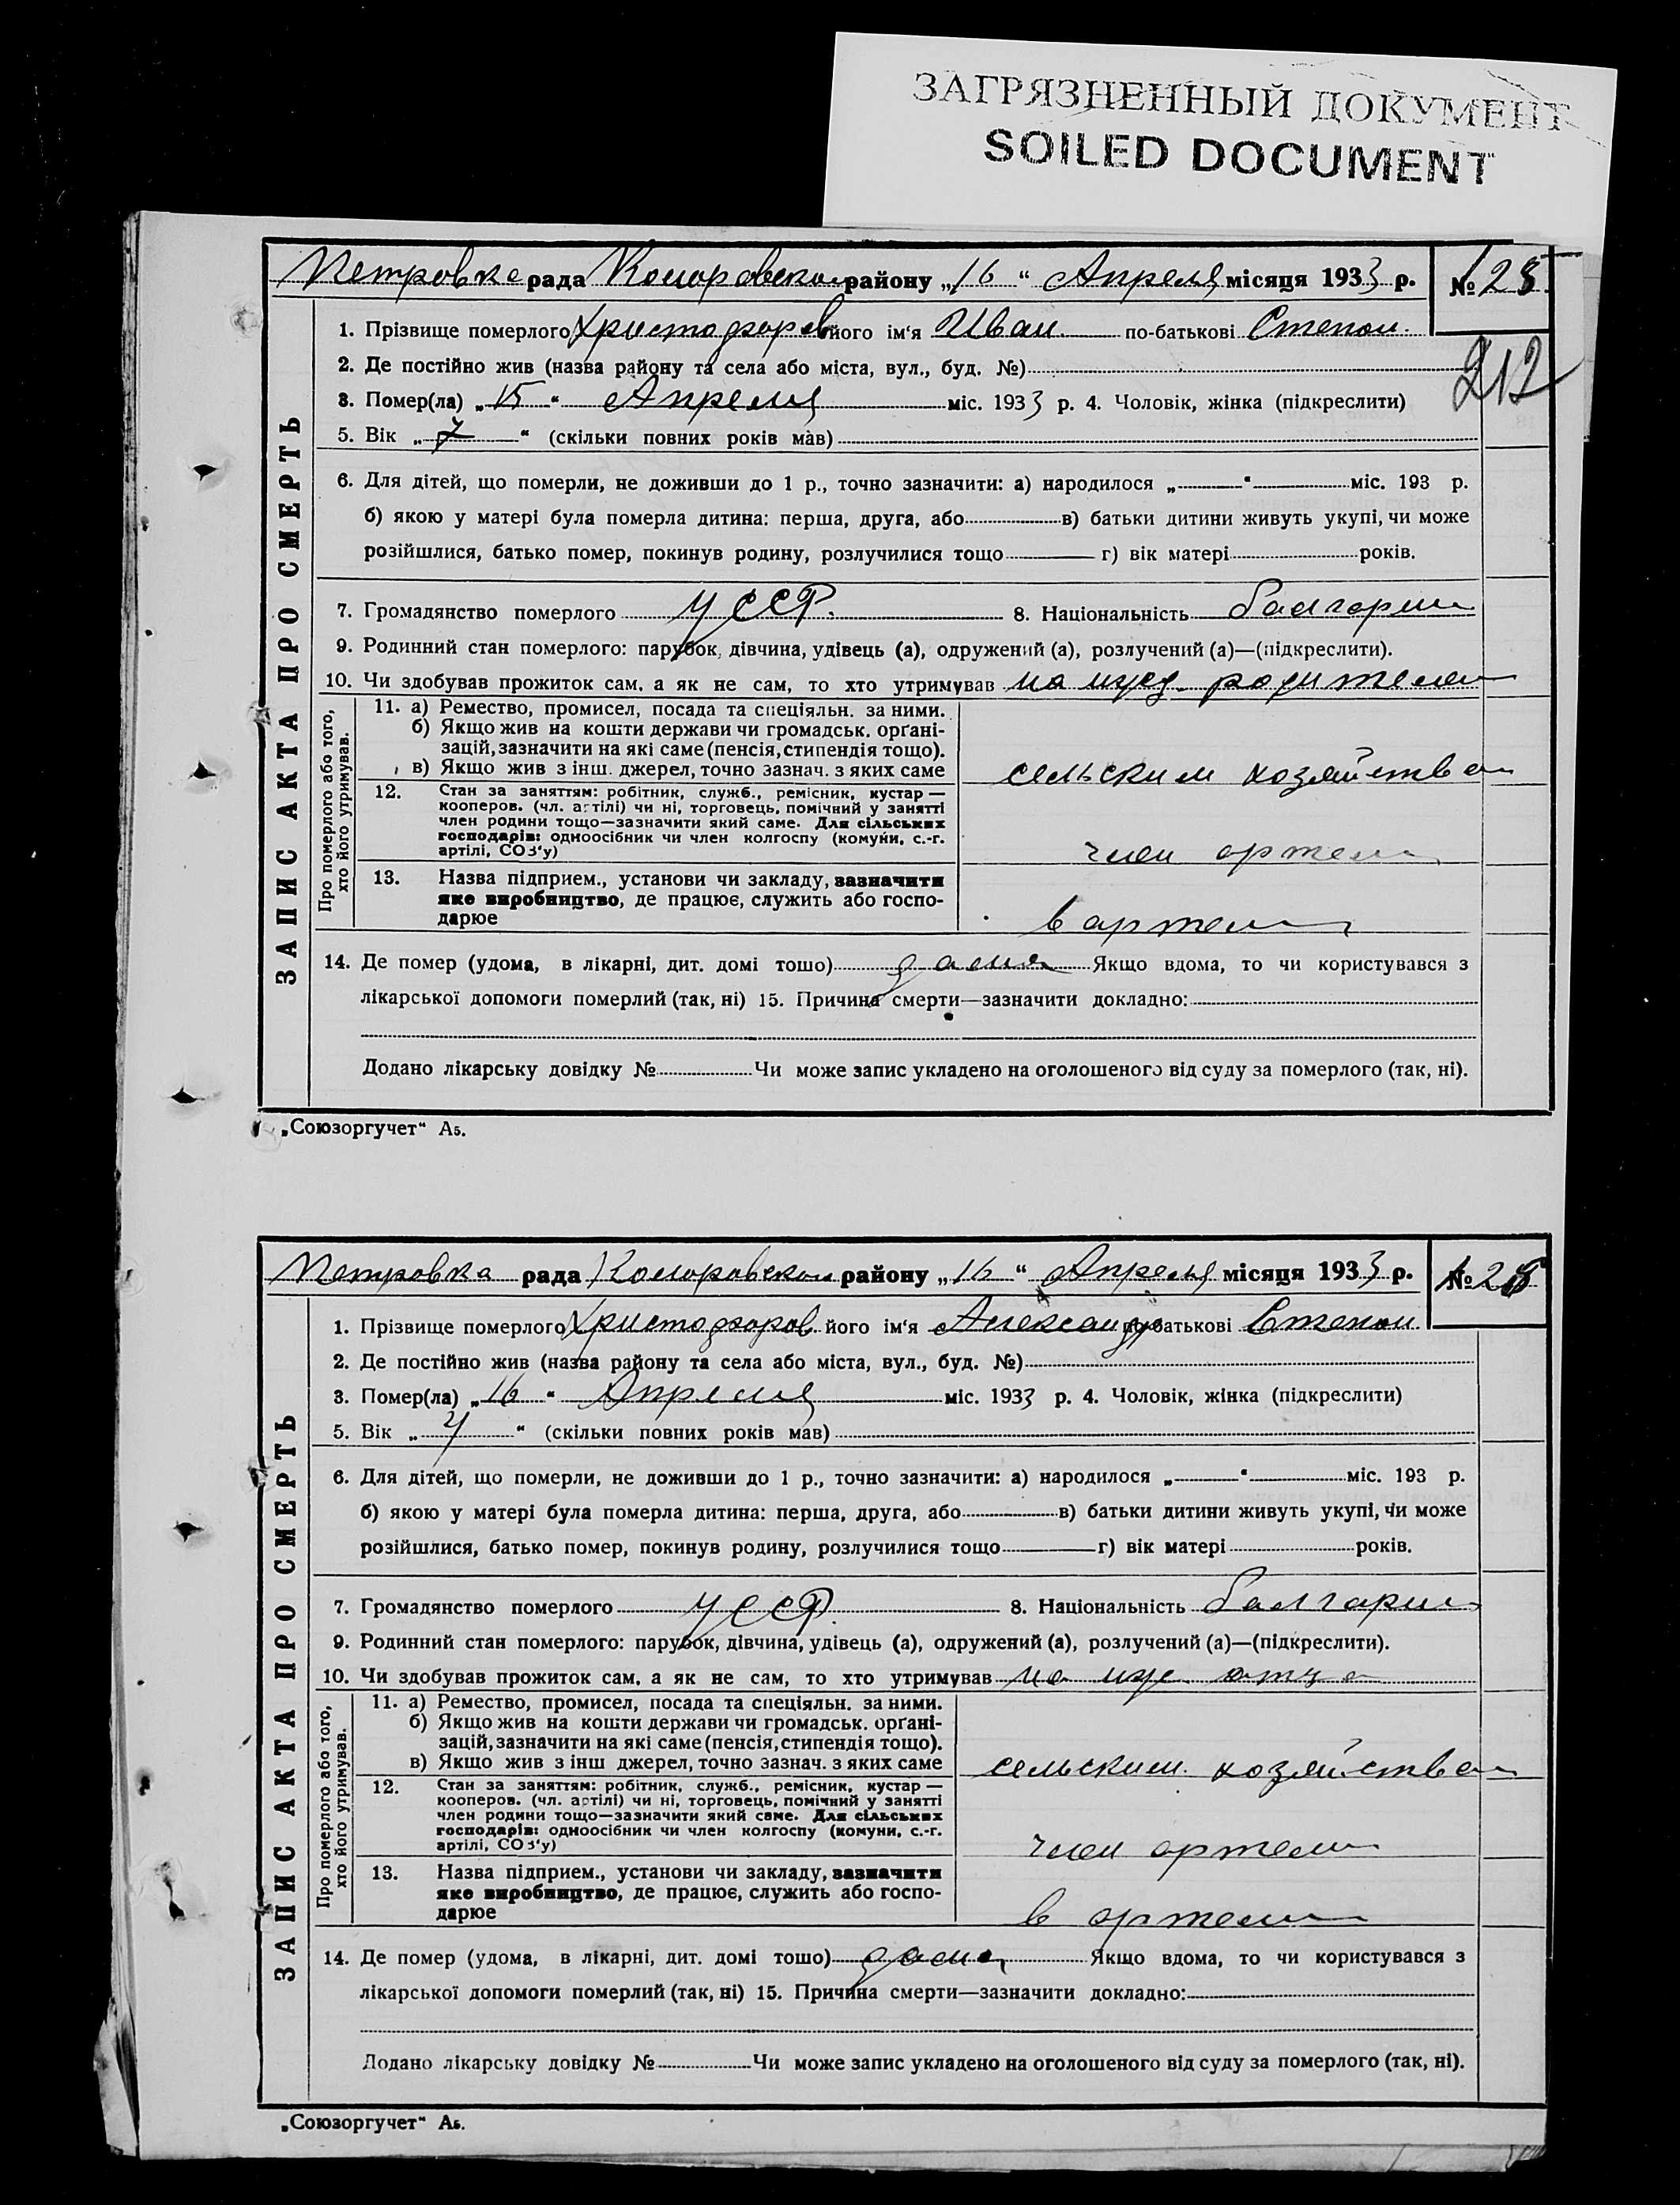 ЗАГРЯЗНЕННЫЙ ДОКУМЕНТ
SOILED DOCUMENT
Петровка рада Коларовском району „16“ Апреля місяця 1933 р. № 28
1. Прізвище померлого Христофоров його ім‘я Иван по-батькові Степан.
212
2. Де постійно жив (назва району та села або міста, вул., буд. №)
3. Помер(ла) „15“ Апреля міс. 1933 р. 4. Чоловік, жінка (підкреслити)
5. Вік „7“ (скільки повних років мав)
6. Для дітей, що померли, не доживши до 1 р., точно зазначити: а) народилося „ “ міс. 193 р.
б) якою у матері була померла дитина: перша, друга, або в) батьки дитини живуть укупі, чи може
розійшлися, батько помер, покинув родину, розлучилися тощо г) вік матері років.
7. Громадянство померлого УССР. 8. Національність
9. Родинний стан померлого: парубок, дівчина, удівець (а), одружений (а), розлучений (а)—(підкреслити).
10. Чи здобував прожиток сам, а як не сам, то хто утримував на ижд. родителей
ЗАПИС АКТА ПРО СМЕРТЬ
Про померлого або того,
хто його утримував.
11. а) Ремество, промисел, посада та спеціяльн. за ними.
б) Якщо жив на кошти держави чи громадськ. орґані-
зацій, зазначити на які саме (пенсія, стипендія тощо).
в) Якщо жив з інш. джерел, точно зазнач. з яких саме
сельским хозяйством
12. Стан за заняттям: робітник, служб., ремісник, кустар —
кооперов. (чл. артілі) чи ні, торговець, помічний у занятті
член родини тощо—зазначити який саме. Для сільських
господарів: одноосібник чи член колгоспу (комуни, с.-г.
артілі, СОЗ‘у)
член артели
13. Назва підприєм., установи чи закладу, зазначити
яке виробництво, де працює, служить або госпо-
дарює
в артели
14. Де помер (удома, в лікарні, дит. домі тощо) дома Якщо вдома, то чи користувався з
лікарської допомоги померлий (так, ні) 15. Причина смерти—зазначити докладно:
Додано лікарську довідку № Чи може запис укладено на оголошеного від суду за померлого (так, ні).
„Союзоргучет“ А5.
Петровка рада Коларовском району „16“ Апреля місяця 1933 р. №
1. Прізвище померлого Христофоров його ім‘я Александр по-батькові Степан.
2. Де постійно жив (назва району та села або міста, вул., буд. №)
3. Помер(ла) „16“ Апреля міс. 1933 р. 4. Чоловік, жінка (підкреслити)
5. Вік „ “ (скільки повних років мав)
6. Для дітей, що померли, не доживши до 1 р., точно зазначити: а) народилося „ “ міс. 193 р.
б) якою у матері була померла дитина: перша, друга, або в) батьки дитини живуть укупі, чи може
розійшлися, батько помер, покинув родину, розлучилися тощо г) вік матері років.
7. Громадянство померлого УССР 8. Національність
9. Родинний стан померлого: парубок, дівчина, удівець (а), одружений (а), розлучений (а)—(підкреслити).
10. Чи здобував прожиток сам, а як не сам, то хто утримував на иж. отца
ЗАПИС АКТА ПРО СМЕРТЬ
Про померлого або того,
хто його утримував.
11. а) Ремество, промисел, посада та спеціяльн. за ними.
б) Якщо жив на кошти держави чи громадськ. орґані-
зацій, зазначити на які саме (пенсія, стипендія тощо).
в) Якщо жив з інш джерел, точно зазнач. з яких саме
сельским. хозяйством
12. Стан за заняттям: робітник, служб., ремісник, кустар —
кооперов. (чл. артілі) чи ні, торговець, помічний у занятті
член родини тощо—зазначити який саме. Для сільських
господарів: одноосібник чи член колгоспу (комуни, с.-г.
артілі, СОЗ‘у)
член артели
13. Назва підприєм., установи чи закладу, зазначити
яке виробництво, де працює, служить або госпо-
дарює
в артели
14. Де помер (удома, в лікарні, дит. домі тощо) дома Якщо вдома, то чи користувався з
лікарської допомоги померлий (так, ні) 15. Причина смерти—зазначити докладно:
Додано лікарську довідку № Чи може запис укладено на оголошеного від суду за померлого (так, ні).
„Союзоргучет“ А5.